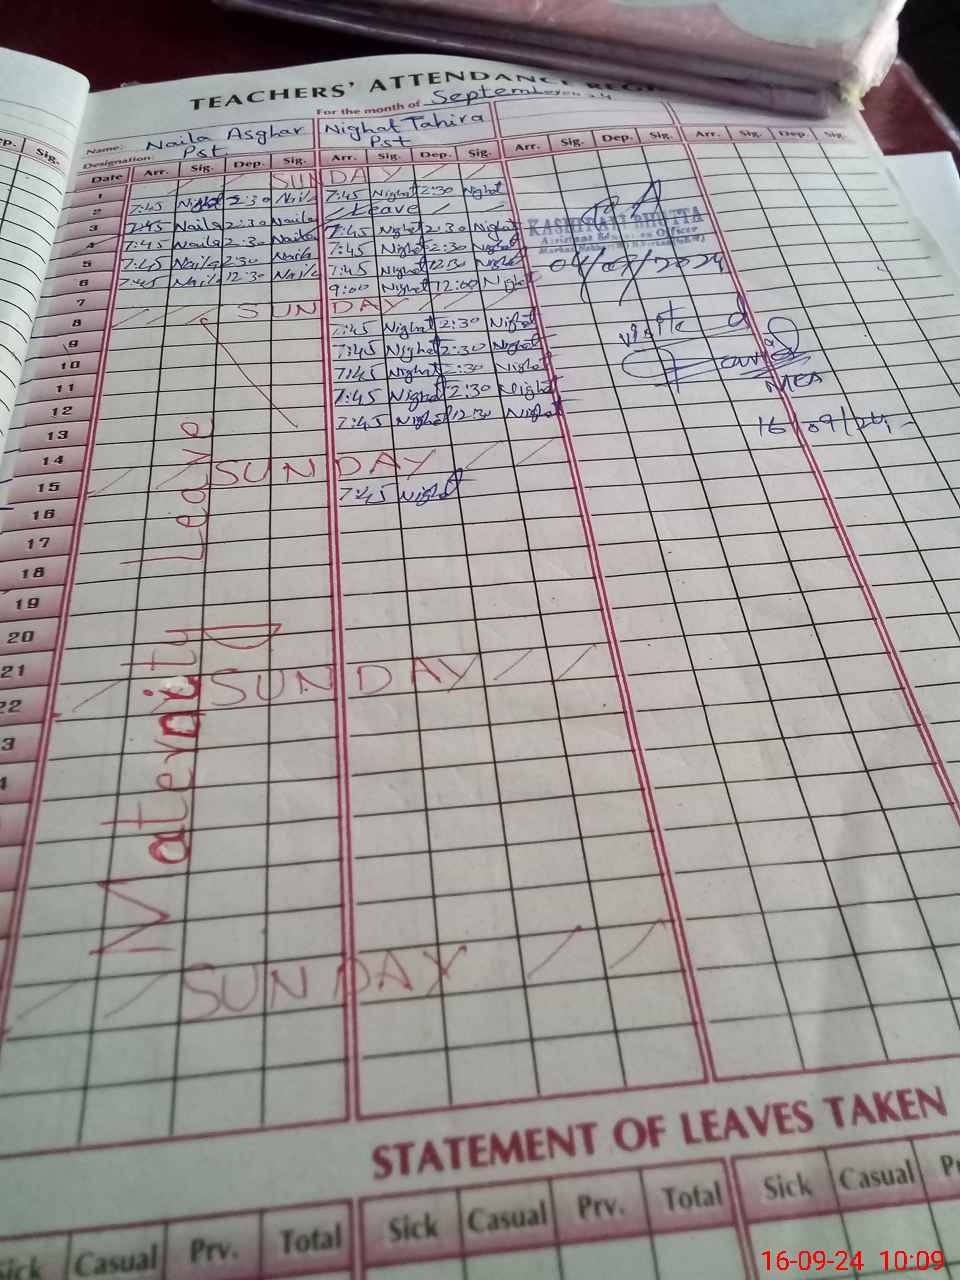 TEACHERS' ATTENDANCE REG
For the month of September 24
Name: Naila Asghar Nighat Tahira
Designation: Pst Pst
Date Arr. Sig. Dep. Sig. Arr. Sig. Dep. Sig. Arr. Sig. Dep. Sig. Arr. Sig. Dep. Sig.
1 SUNDAY
2 7:45 2:30 Naila 7:45 Nighat 2:30 Nighat
3 7:45 Naila 2:30 Naila Leave
4 7:45 Naila 2:30 Naila 7:45 Nighat 2:30 Nighat
5 7:45 Naila 2:30 Naila 7:45 Nighat 2:30 Nighat
6 7:45 Naila 12:30 Naila 7:45 Nighat 12:30 Nighat
7 9:00 Nighat 12:00 Nighat
8 SUNDAY
9 7:45 Nighat 2:30 Nighat
10 7:45 Nighat 2:30 Nighat
11 7:45 Nighat 2:30 Nighat
12 7:45 Nighat 2:30 Nighat
13 7:45 Nighat 12:30 Nighat
14
15 SUNDAY
16 7:45 Nighat
17
18
19
20
21
22 SUNDAY
3
4
SUNDAY
Maternity Leave
KASHIRAN BHUTTA
04/09/2024
visited
MEA
16/09/24
STATEMENT OF LEAVES TAKEN
Sick Casual Prv. Total Sick Casual Prv. Total Sick Casual
16-09-24 10:09